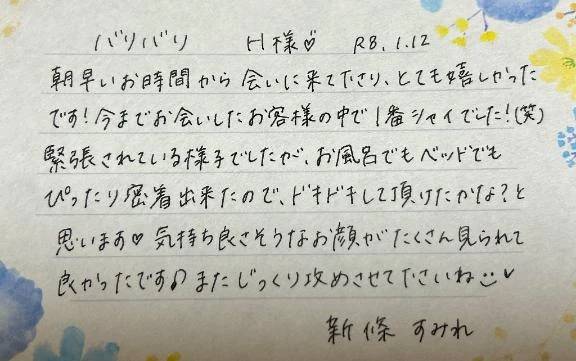 バリバリ H様♡ R8.1.12
朝早いお時間から会いに来て下さり、とても嬉しかった
です!今までお会いしたお客様の中で1番シャイでした!(笑)
緊張されている様子でしたが、お風呂でもベッドでも
ぴったり密着出来たので、ドキドキして頂けたかな?と
思います♡気持ち良さそうなお顔がたくさん見られて
良かったです♪またじっくり攻めさせて下さいね☺♥
新條 すみれ